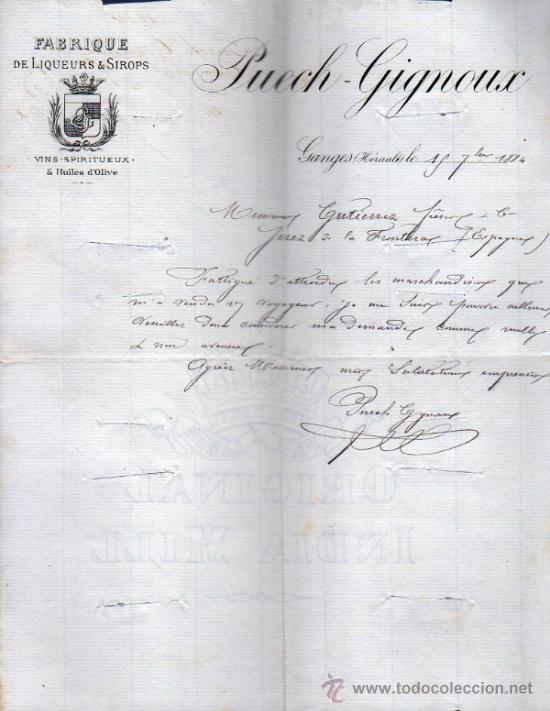 FABRIQUE
DE LIQUEURS & SIROPS
VINS · SPIRITUEUX
& Huiles d'Olive
Puech-Gignoux
Ganges (Hérault) le 15 7bre 1884
Messieurs Gutierrez frères & Cie
Jerez de la Frontera (Espagne)
Fatigué d'attendre les marchandises que
m'a vendu votre voyageur, je me suis pourvu ailleurs
Veuillez donc considérer ma demande comme nulle
& non avenue.
Agréez Messieurs mes Salutations empressées
Puech Gignoux
ORIGINAL
INDIA MILL
www.todocoleccion.net